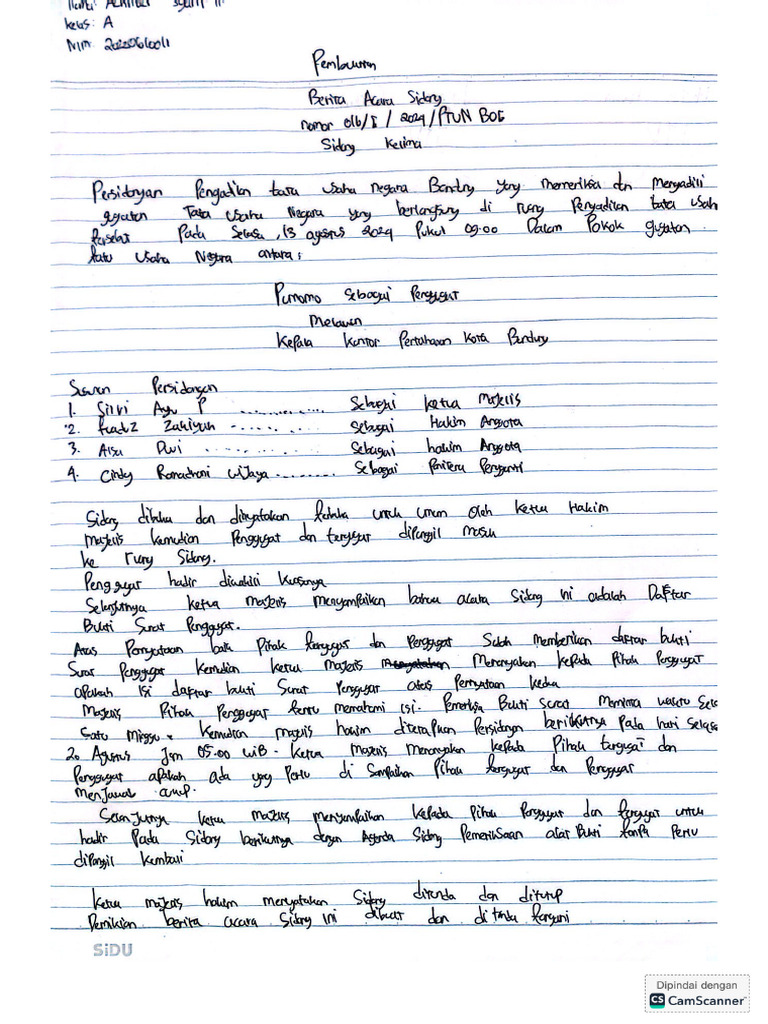 kelas: A
NIM:
Pembuatan
Berita Acara Sidang
nomor 016/I/2024/PTUN BDG
Sidang Kelima
Persidangan Pengadilan tata usaha negara Bandung yang memeriksa dan Mengadili
gugatan Tata Usaha Negara yang berlangsung di ruang Pengadilan tata usaha
tersebut Pada Selasa, 13 agustus 2024 Pukul 09.00 Dalam Pokok gugatan
tata Usaha Negara antara:
Purnomo Sebagai Penggugat
Melawan
Kepala Kantor Pertahanan Kota Bandung
Susunan Persidangan
1. Silvi Ayu P .............. Sebagai ketua Majelis
2. Zakiyah ........ sebagai Hakim Anggota
3. Aisu Dwi ........ Sebagai hakim Anggota
4. Cindy Ramadhani wijaya ......... Sebagai Panitera Pengganti
Sidang dibuka dan dinyatakan terbuka untuk umum Oleh ketua Hakim
majelis kemudian Penggugat dan tergugat dipanggil masuk
ke ruang Sidang.
Penggugat hadir diwakili kuasanya
Selanjutnya ketua majelis menyampaikan bahwa acara Sidang ini adalah Daftar
Bukti Surat Penggugat.
Atas Pernyataan baik Pihak tergugat dan Penggugat Sudah memberikan daftar bukti
Surat Penggugat kemudian ketua majelis Menanyakan kepada Pihak Penggugat
apakah isi daftar bukti Surat Penggugat atas Pernyataan kedua
Majelis Pihak Penggugat tentu memahami isi. Pemeriksa Bukti Surat Meminta waktu
Satu Minggu. Kemudian majelis hakim ditetapkan Persidangan berikutnya Pada hari Selasa
20 Agustus Jam 05.00 WIB. Ketua Majelis menanyakan kepada Pihak tergugat dan
Penggugat apakah ada yang Perlu di Sampaikan Pihak tergugat dan Penggugat
Menjawab cukup.
Selanjutnya ketua majelis menyampaikan kepada Pihak Penggugat dan tergugat untuk
hadir Pada Sidang berikutnya dengan Agenda Sidang Pemeriksaan alat Bukti tanpa Perlu
dipanggil kembali
ketua majelis hakim menyatakan Sidang ditunda dan ditutup
Demikian berita acara Sidang ini dibuat dan di tanda tangani
SiDU
Dipindai dengan
CS CamScanner